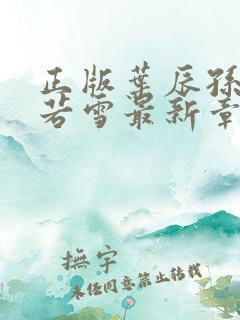 正版葉辰孫
若雪最新章
撫宇
未经同意禁止转载